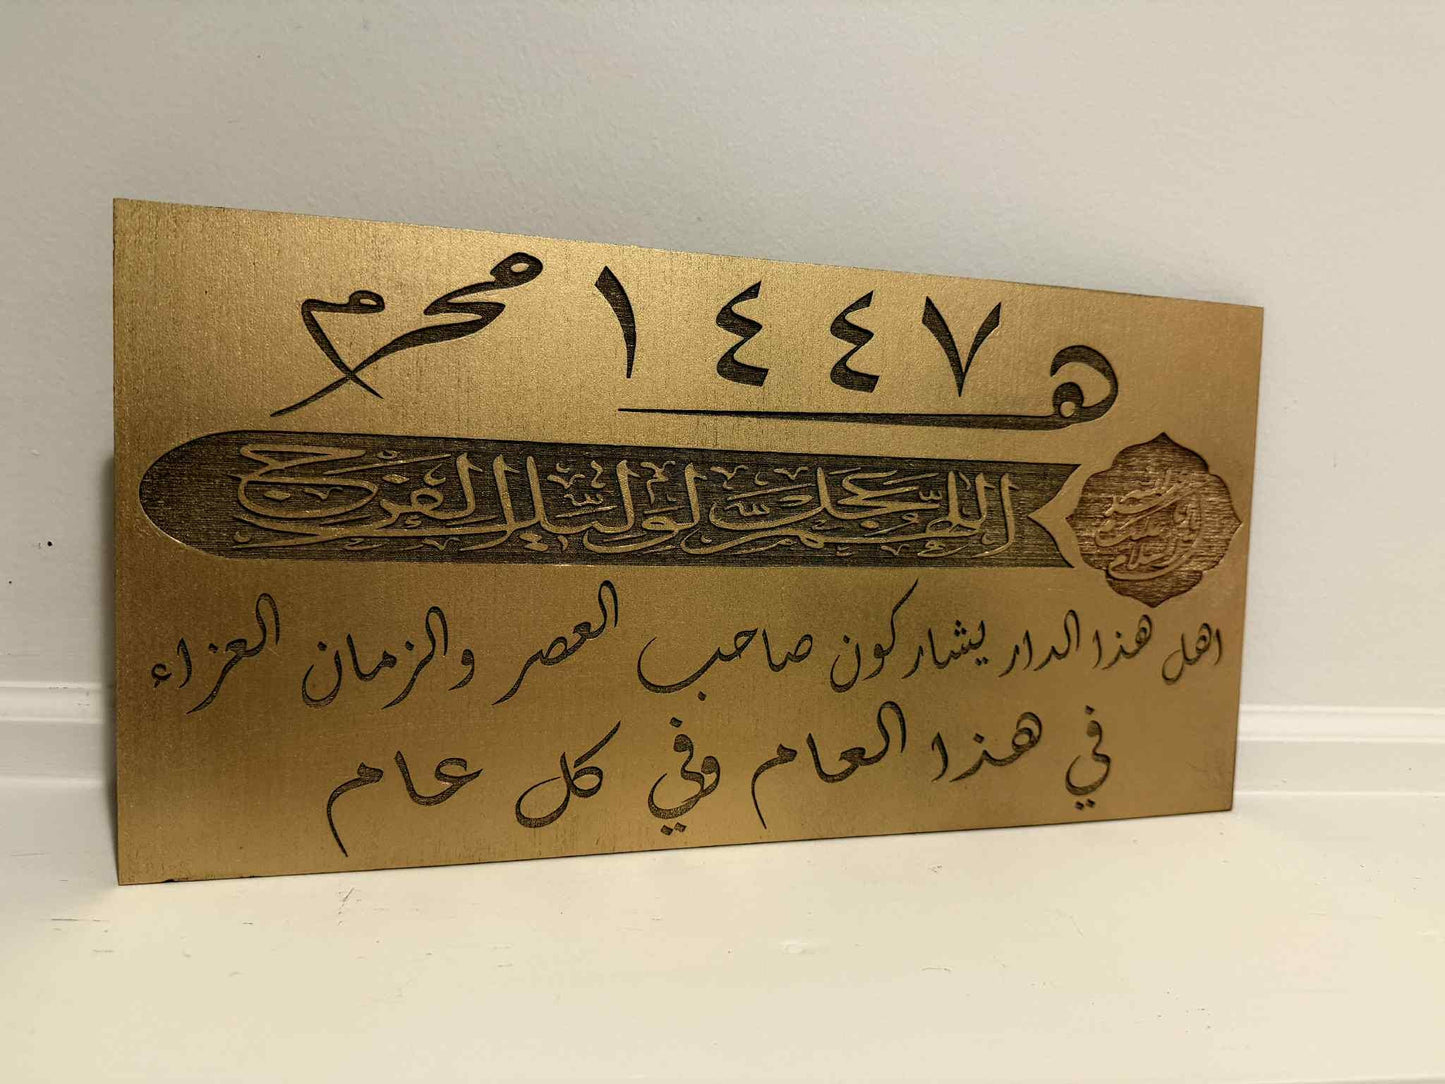 محرم ١٤٤٧ هـ
اللهم عجل لوليك الفرج
اهل هذا الدار يشاركون صاحب العصر والزمان العزاء
في هذا العام وفي كل عام